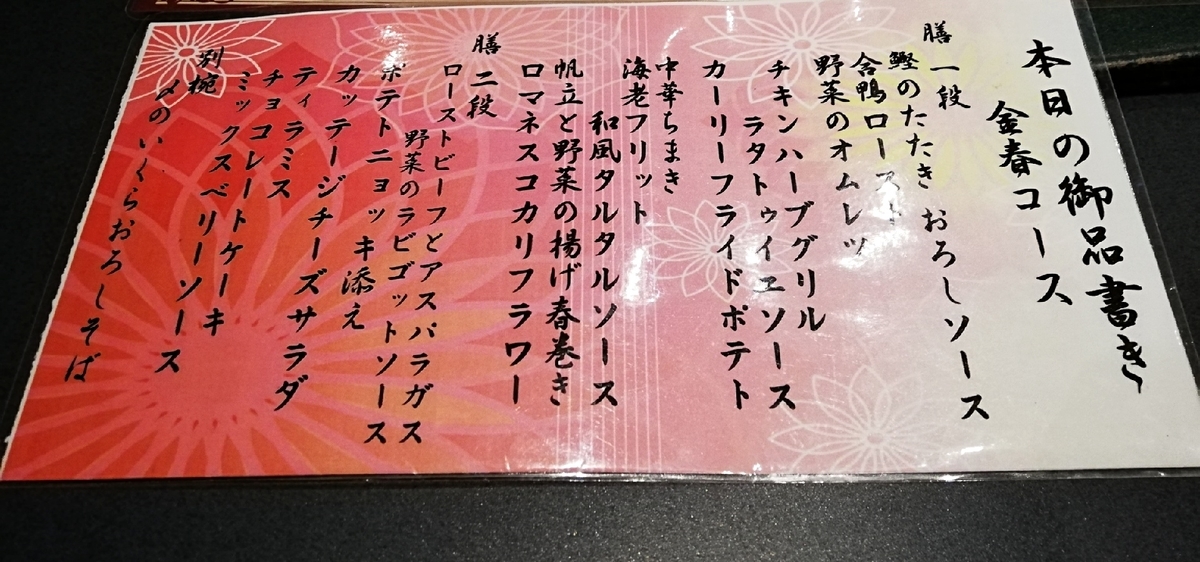 本日の御品書き
金春コース
膳 一段
鰹のたたき おろしソース
合鴨ロースト
野菜のオムレツ
チキンハーブグリル
ラタトゥイエソース
カーリーフライドポテト
中華ちまき
海老フリット
和風タルタルソース
帆立と野菜の揚げ春巻き
ロマネスコカリフラワー
膳 二段
ローストビーフとアスパラガス
野菜のラビゴットソース
ポテトニョッキ添え
カッテージチーズサラダ
ティラミス
チョコレートケーキ
ミックスベリーソース
別椀
〆のいくらおろしそば